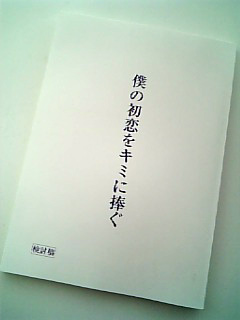 僕の初恋をキミに捧ぐ
検討稿